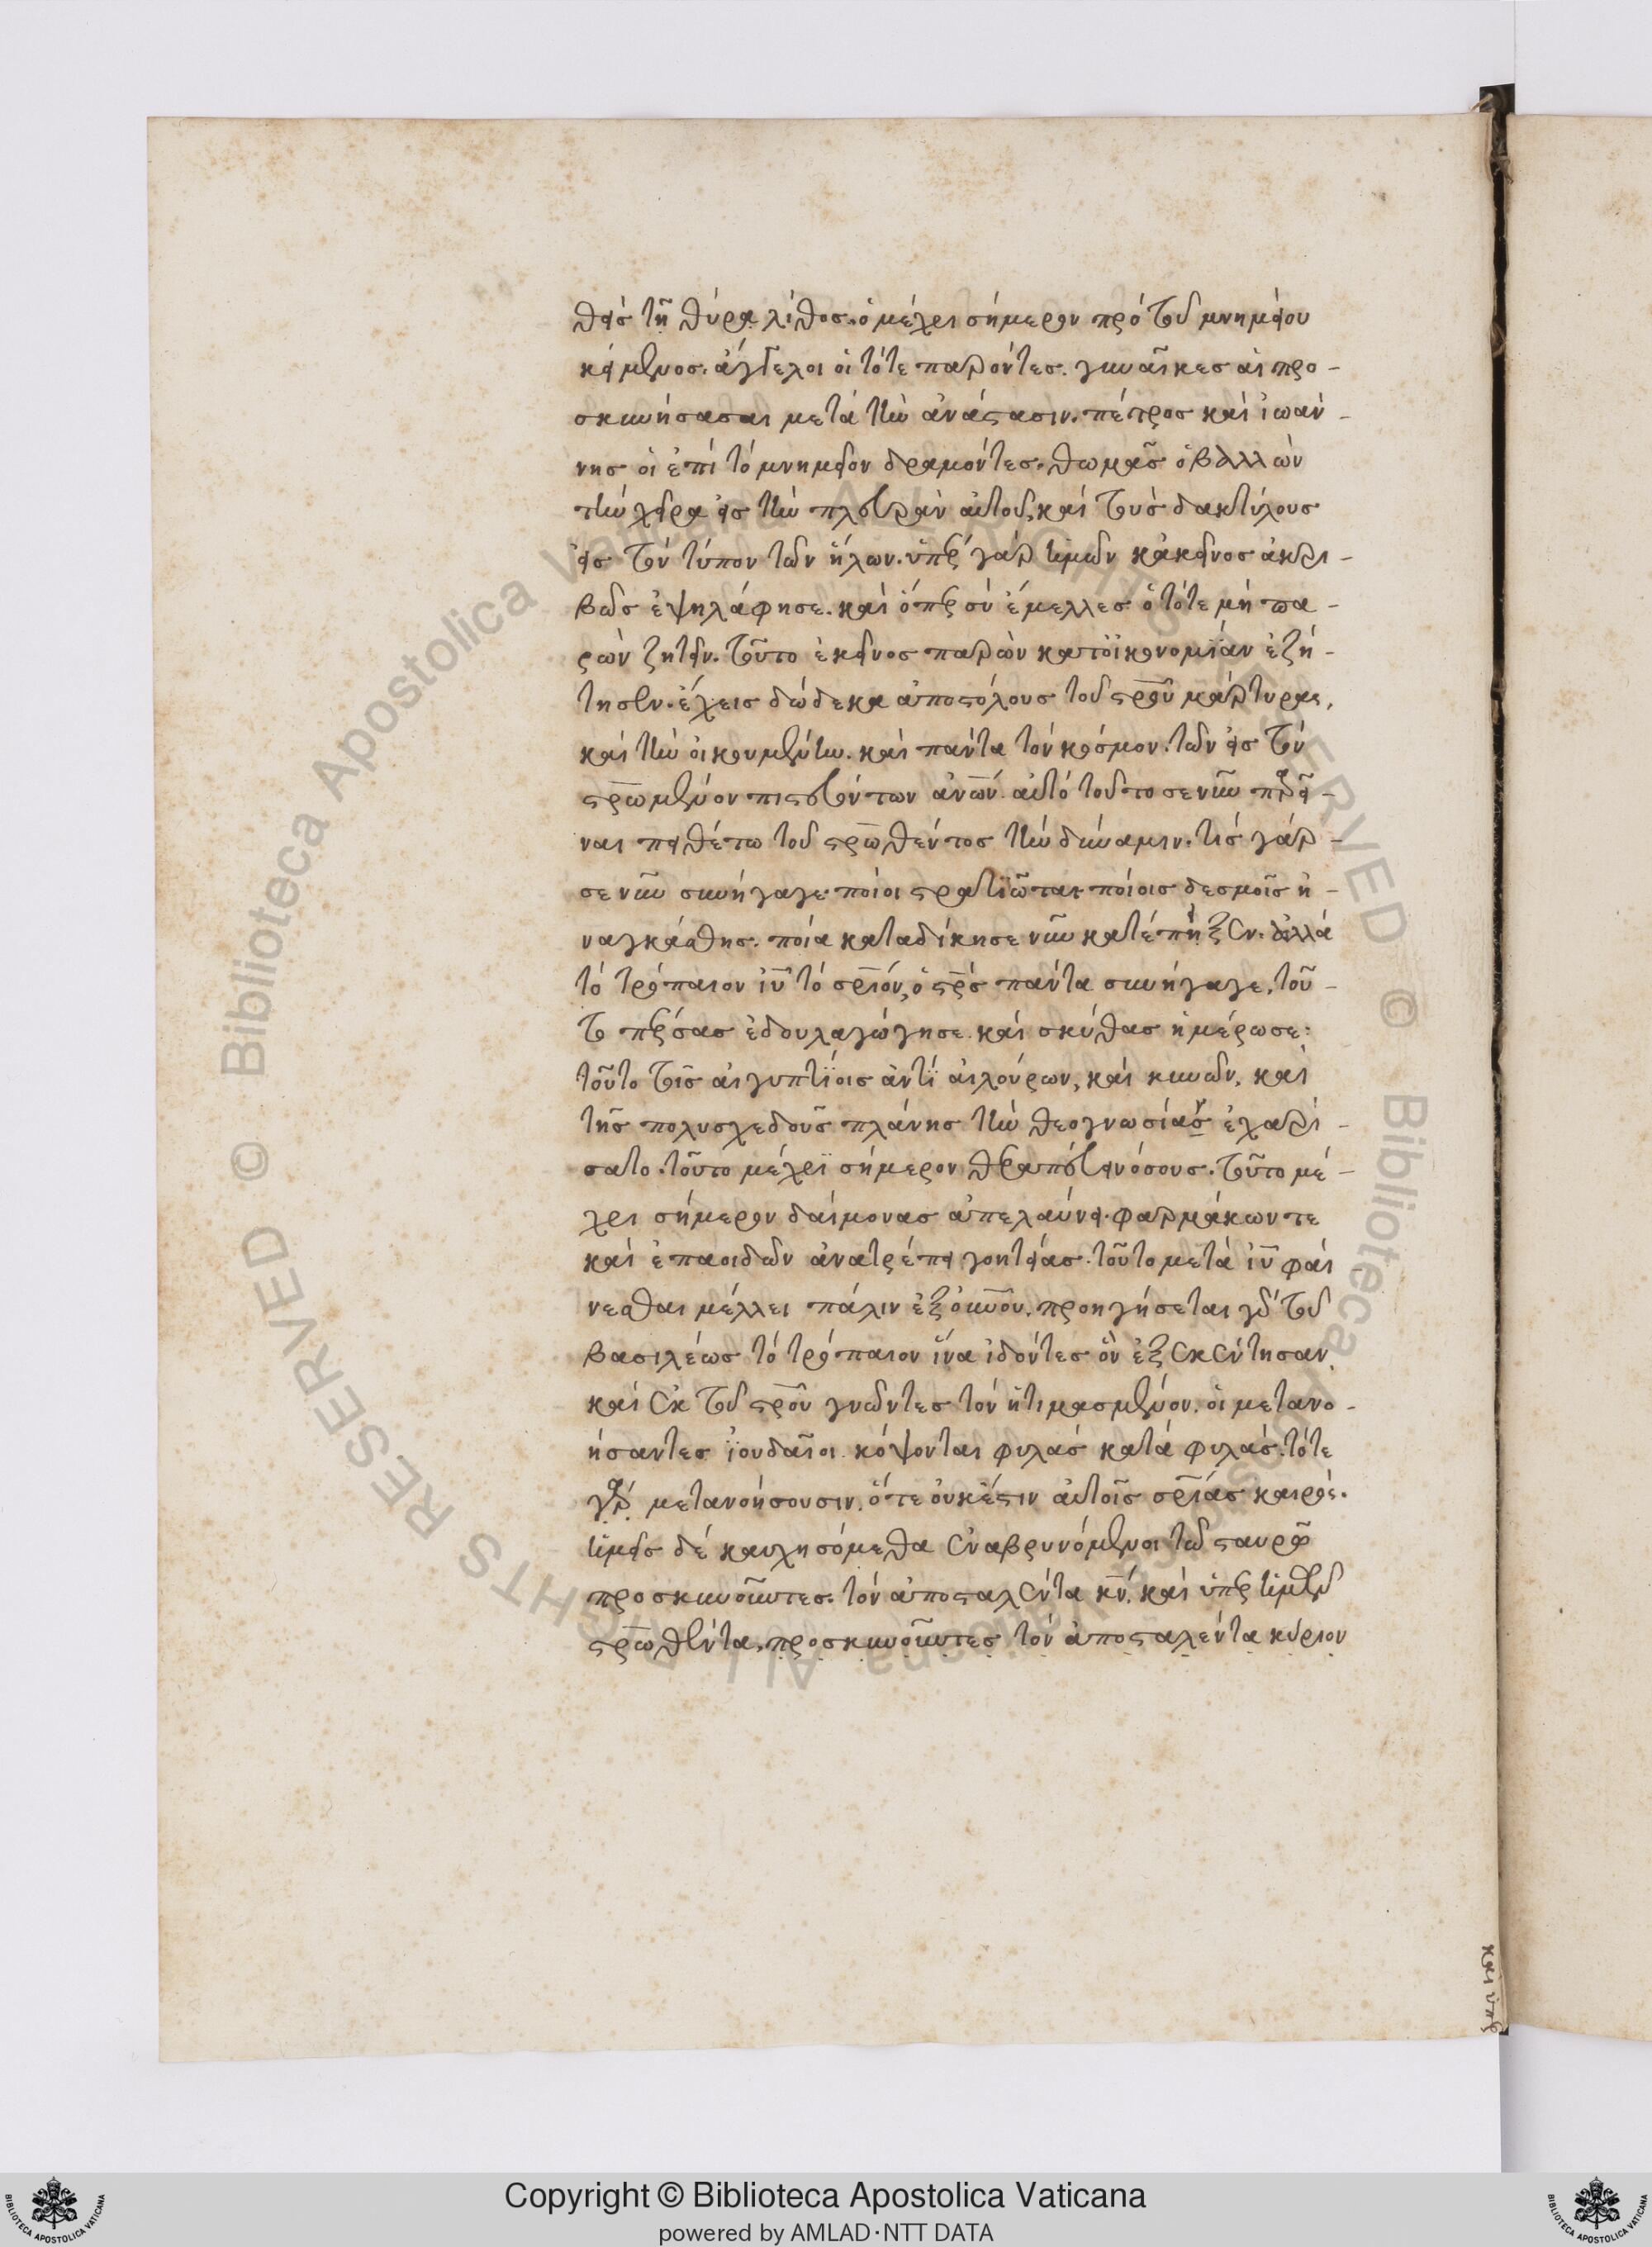 θεὶς τῇ θύρᾳ λίθος. ὁ μέχρι σήμερον πρὸ τοῦ μνημείου
κείμενος. ἄγγελοι οἱ τότε παρόντες. γυναῖκες αἱ προ-
σκυνήσασαι μετὰ τὴν ἀνάστασιν. πέτρος καὶ ἰωάν-
νης οἱ ἐπὶ τὸ μνημεῖον δραμόντες. θωμᾶς ὁ βαλλὼν
τὴν χεῖρα εἰς τὴν πλευρὰν αὐτοῦ, καὶ τοὺς δακτύλους
εἰς τὸν τύπον τῶν ἥλων. ὑπὲρ γὰρ ἡμῶν κἀκεῖνος ἀκρι-
βῶς ἐψηλάφησε. καὶ ὅπερ σὺ ἔμελλες ὁ τότε μὴ πα-
ρὼν ζητεῖν. τοῦτο ἐκεῖνος παρὼν κατοϊκονομΐαν ἐζή-
τησεν. ἔχεις δώδεκα ἀποστόλους τοῦ σρ̅οῦ μάρτυρας,
καὶ τὴν οἰκουμένην. καὶ πάντα τὸν κόσμον. τῶν εἰς τὸν
σρ̅ωμένον πιστευόντων ἀν̅ων. αὐτὸ τοῦτο σε νῦν παρεῖ-
ναι πειθέτω τοῦ σρ̅ωθέντος τὴν δύναμιν. τίς γάρ
σε νῦν συνήγαγε. ποίοι στρατϊῶται. ποίοις δεσμοῖς ἠ-
ναγκάσθης. ποία καταδίκη σε νῦν κατέπηξεν. ἀλλὰ
τὸ τρόπαιον ἰυ̅ τὸ σρ̅ιόν, ὁ σρ̅ὸς πάντα συνήγαγε. τοῦ-
το πέρσας ἐδουλαγώγησε. καὶ σκύθας ἡμέρωσε:
τοῦτο τοῖς αἰγυπτΐοις ἀντΐ αἰλούρων, καὶ κυνῶν, καὶ
τῆς πολυσχεδοῦς πλάνης τὴν θεογνωσίας ἐχαρί-
σατο. τοῦτο μέχρϊ σήμερον θεραπεύει νόσους. τοῦτο μέ-
χρι σήμερον δαίμονας ἀπελαύνει. φαρμάκων τε
καὶ ἐπαοιδῶν ἀνατρέπει γοητείας. τοῦτο μετὰ ἰυ̅ φαί
νεσθαι μέλλει πάλιν ἐξ οὐν̅ου. προηγήσεται γὰρ τοῦ
βασιλέως τὸ τρόπαιον ἵνα ἰδόντες ὃν ἐξεκεντησαν
καὶ ἐκ τοῦ σρ̅οῦ γνῶντες τὸν ἠτιμασμένον. οἱ μετανο-
ήσαντες ἰουδαῖοι κόψονται φυλὰς κατὰ φυλάς. τότε
γὰρ μετανοήσουσιν. ὅτε οὐκέστιν αὐτοῖς σρ̅ίας καιρός.
ἡμεῖς δὲ καυχησόμεθα ἐναβρυνόμενοι τῶ σταυρῷ
προσκυνοῦντες. τὸν ἀποσταλέντα κν̅. καὶ ὑπὲρ ἡμῶν
σρ̅ωθέντα. προσκυνοῦντες τὸν ἀποσταλέντα κύριον
καὶ ὑπὲρ
Copyright © Biblioteca Apostolica Vaticana
powered by AMLAD·NTT DATA